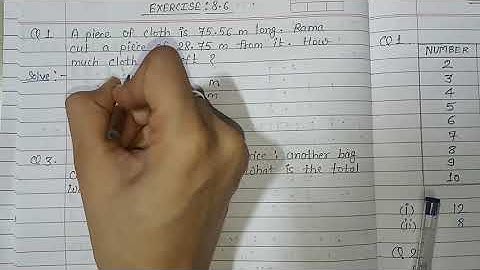 EXERCISE: 8.6
Q 1. A piece of cloth is 75.56 m long. Rama
cut a piece 28.75 m from it. How
much cloth ?
Solve:-
m
m
Q 3. : another bag
what is the total
Q 1
NUMBER
2
3
4
5
6
7
8
9
10
(i) 12
(ii) 8
Q 2